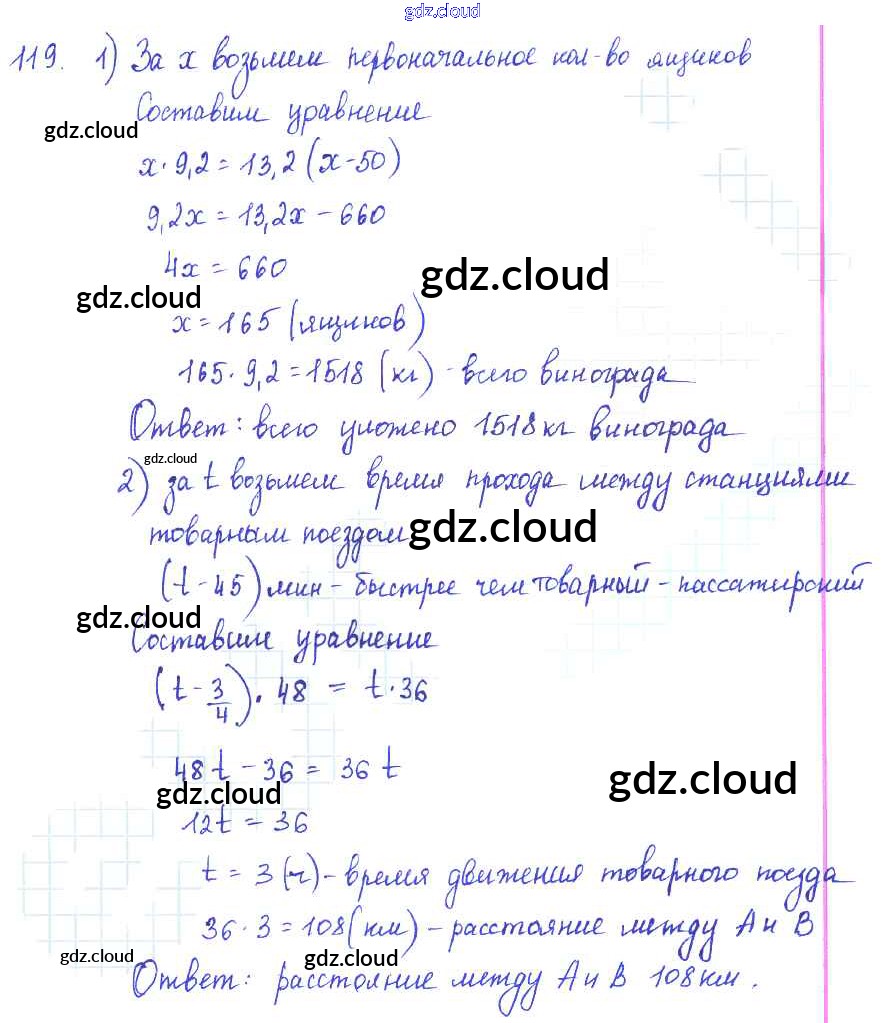 gdz.cloud
119. 1) За x возьмем первоначальное кол-во ящиков
Составим уравнение
gdz.cloud
x · 9,2 = 13,2 (x - 50)
9,2x = 13,2x - 660
4x = 660
gdz.cloud
gdz.cloud
x = 165 (ящиков)
165 · 9,2 = 1518 (кг) - всего винограда
Ответ: всего уложено 1518 кг винограда
gdz.cloud
2) за t возьмем время прохода между станциями
товарным поездом
gdz.cloud
(t - 45) мин - быстрее чем товарный - пассажирский
gdz.cloud
Составим уравнение
(t - 3/4) · 48 = t · 36
48t - 36 = 36t
gdz.cloud
gdz.cloud
12t = 36
t = 3 (ч) - время движения товарного поезда
36 · 3 = 108 (км) - расстояние между А и В
gdz.cloud
gdz.cloud
Ответ: расстояние между А и В 108 км.